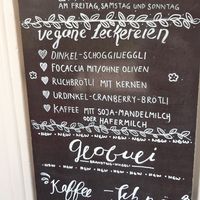 AM FREITAG, SAMSTAG UND SONNTAG
vegane Leckereien
DINKEL-SCHOGGIWEGGLI
FOCACCIA MIT/OHNE OLIVEN
RUCHBRÖTLI MIT KERNEN
URDINKEL-CRANBERRY-BRÖTLI
KAFFEE MIT SOJA-MANDELMILCH
ODER HAFERMILCH
NEW NEW NEW NEW NEW NEW
Kaffee